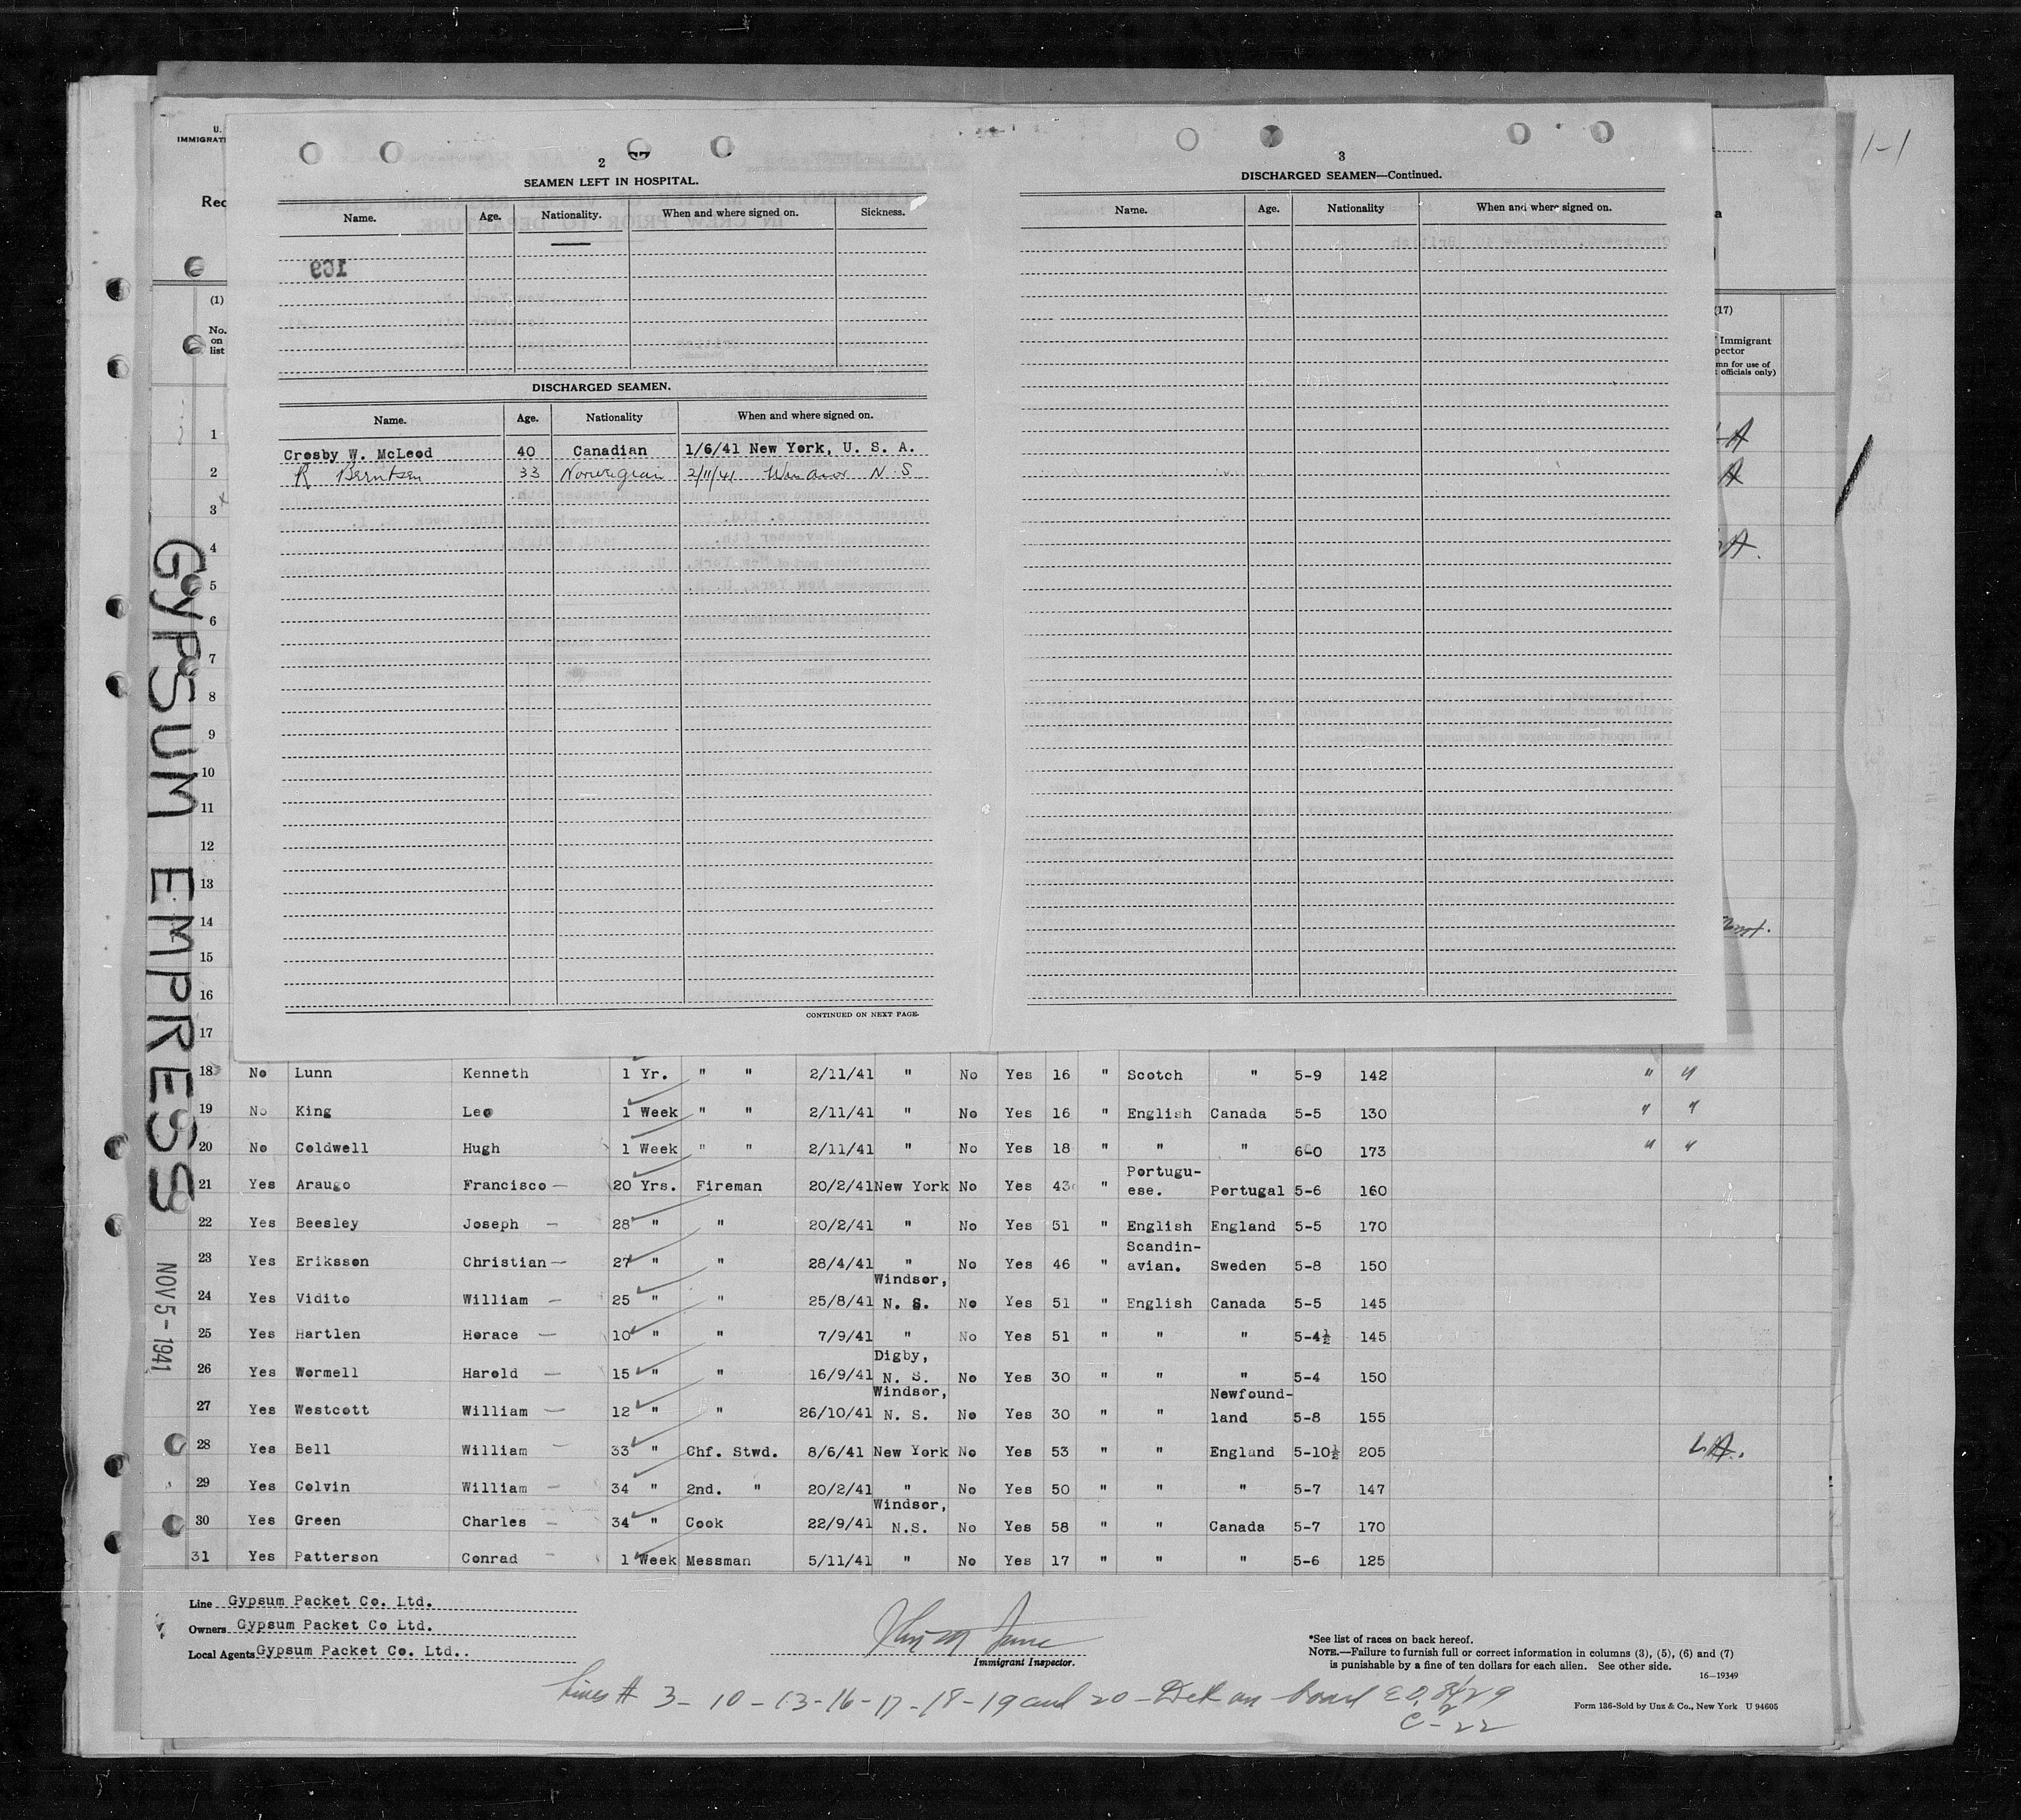 1-1
U.
IMMIGRAT
Rec
2
SEAMEN LEFT IN HOSPITAL.
Name. Age. Nationality. When and where signed on. Sickness.
169
DISCHARGED SEAMEN.
Name. Age. Nationality When and where signed on.
Crosby W. McLeod 40 Canadian 1/6/41 New York, U. S. A.
R Berntsen 33 Norwegian 2/11/41 Windsor N. S
CONTINUED ON NEXT PAGE.
3
DISCHARGED SEAMEN—Continued.
Name. Age. Nationality When and where signed on.
a
(17)
Immigrant
pector
mn for use of
officials only)
(1)
No.
on
list
1
2
3
4
5
6
7
8
9
10
11
12
13
14
15
16
17
GYPSUM EMPRESS
NOV 5 - 1941
18 No Lunn Kenneth 1 Yr. " " 2/11/41 " No Yes 16 " Scotch " 5-9 142 " "
19 No King Leo 1 Week " " 2/11/41 " No Yes 16 " English Canada 5-5 130 " "
20 No Coldwell Hugh 1 Week " " 2/11/41 " No Yes 18 " " " 6-0 173 " "
21 Yes Araugo Francisco — 20 Yrs. Fireman 20/2/41 New York No Yes 43 " Portugu-
ese. Portugal 5-6 160
22 Yes Beesley Joseph — 28 " " 20/2/41 " No Yes 51 " English England 5-5 170
23 Yes Eriksson Christian — 27 " " 28/4/41 " No Yes 46 " Scandin-
avian. Sweden 5-8 150
24 Yes Vidito William — 25 " " 25/8/41 Windsor,
N. S. No Yes 51 " English Canada 5-5 145
25 Yes Hartlen Horace — 10 " " 7/9/41 " No Yes 51 " " " 5-4½ 145
26 Yes Wormell Harold — 15 " " 16/9/41 Digby,
N. S. No Yes 30 " " " 5-4 150
27 Yes Westcott William — 12 " " 26/10/41 Windsor,
N. S. No Yes 30 " " Newfound-
land 5-8 155
28 Yes Bell William — 33 " Chf. Stwd. 8/6/41 New York No Yes 53 " " England 5-10½ 205
29 Yes Colvin William — 34 " 2nd. " 20/2/41 " No Yes 50 " " " 5-7 147
30 Yes Green Charles — 34 " Cook 22/9/41 Windsor,
N.S. No Yes 58 " " Canada 5-7 170
31 Yes Patterson Conrad — 1 Week Messman 5/11/41 " No Yes 17 " " " 5-6 125
Line Gypsum Packet Co. Ltd.
Owners Gypsum Packet Co Ltd.
Local Agents Gypsum Packet Co. Ltd..
Immigrant Inspector.
*See list of races on back hereof.
NOTE.—Failure to furnish full or correct information in columns (3), (5), (6) and (7)
is punishable by a fine of ten dollars for each alien. See other side.
16—19349
Form 136-Sold by Unz & Co., New York U 94605
Lines # 3 - 10 - 13 - 16 - 17 - 18 - 19 and 20 - Det on board
C-22